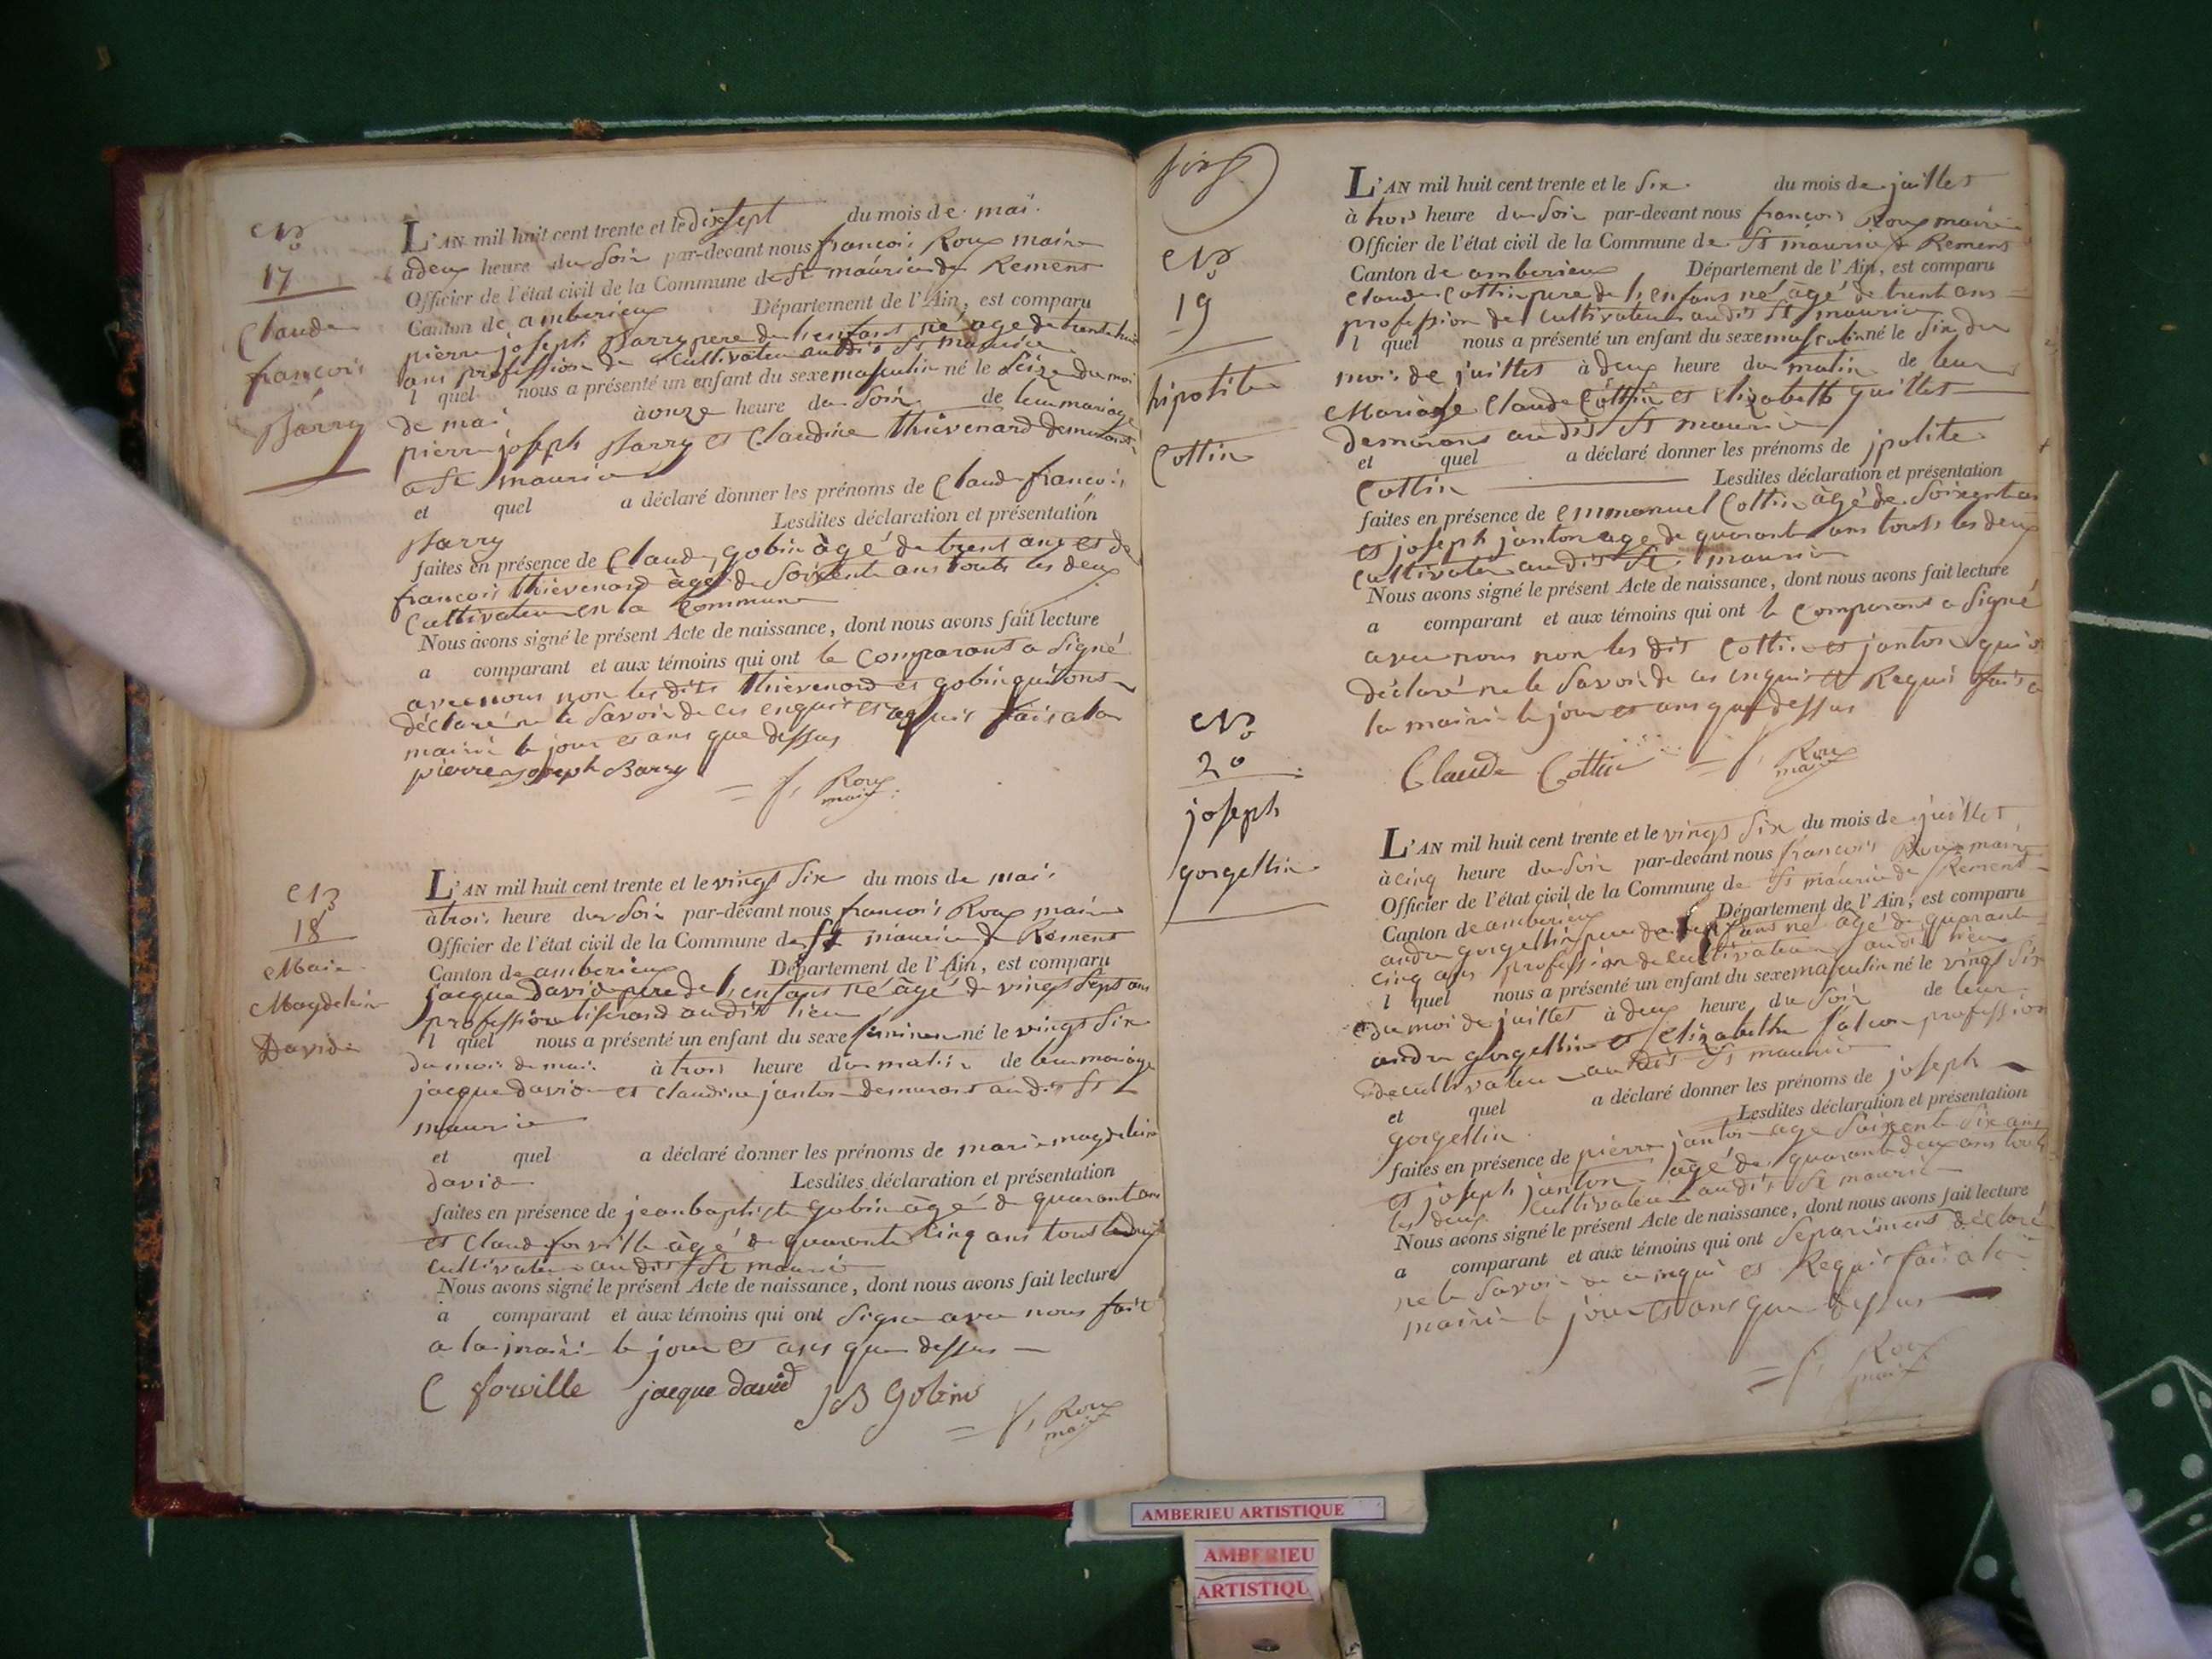 No
17
Claude
françois
Barry
L'AN mil huit cent trente et le dix sept du mois de mai
a deux heure du soir par-devant nous françois Roux maire
Officier de l'état civil de la Commune de St maurice de Remens
Canton de amberieux Département de l'Ain, est comparu
pierre joseph Barry pere de l'enfans né age de trente huit
ans profession de cultivateur au dit St maurice
l quel nous a présenté un enfant du sexe masculin né le seize du moi
de mai à onze heure du soir de leur mariage
pierre joseph Barry et Claudine thievenard demeurant
a St maurice
et quel a déclaré donner les prénoms de Claude françois
Barry Lesdites déclaration et présentation
faites en présence de Claude gobin àgé de trent ans et de
francois thievenard àgé de soixente ans touts les deux
Cultivateur en la Commune
Nous avons signé le présent Acte de naissance, dont nous avons fait lecture
a comparant et aux témoins qui ont le Comparant a signé
avec nous non les dits thievenard et gobin qui ons
déclaré ne le savoir de ces enquis et requis fais a la
mairie le jour et ans que dessus
pierre joseph Barry
f, Roux
maire
No
18
Marie
Magdelein
David
L'AN mil huit cent trente et le vingt six du mois de mai
à trois heure du soir par-devant nous francois Roux maire
Officier de l'état civil de la Commune de St maurice de Remens
Canton de amberieux Département de l'Ain, est comparu
jacque david pere de l'enfans né àgé de vingt sept ans
profession tiserand au dit lieu
l quel nous a présenté un enfant du sexe feminin né le vingt six
du mois de mai à trois heure du matin de leur mariage
jacque david et claudine janton demeurant au dit St
maurice
et quel a déclaré donner les prénoms de marie magdelein
david Lesdites déclaration et présentation
faites en présence de jean baptiste gobin àgé de quarant ans
et Claude forville àgé de quarante cinq ans tous les deux
cultivateur au dit St maurice
Nous avons signé le présent Acte de naissance, dont nous avons fait lecture
a comparant et aux témoins qui ont signe avec nous fait
a la mairie le jour et ans que dessus
C forville jacque david JB Gobin
f, Roux
maire
No
19
hipolite
Cottin
L'AN mil huit cent trente et le six du mois de juillet
à trois heure du soir par-devant nous françois Roux maire
Officier de l'état civil de la Commune de St maurice de Remens
Canton de amberieux Département de l'Ain, est comparu
Claude Cottin pere de l'enfans né àgé de trent ans
profession de Cultivateur au dit St maurice
l quel nous a présenté un enfant du sexe masculin né le six du
mois de juillet à deux heure du matin de leur
Mariage Claude Cottin et Elizabeth guillet
demeurans au dit St maurice
et quel a déclaré donner les prénoms de jpolite
Cottin Lesdites déclaration et présentation
faites en présence de emmanuel Cottin àgé de soixent ans
et joseph janton age de quarante ans touts les deux
Cultivateur au dit St maurice
Nous avons signé le présent Acte de naissance, dont nous avons fait lecture
a comparant et aux témoins qui ont le Comparant a signé
avec nous non les dit Cottin et janton qui on
déclaré ne le savoir de ces enquis et Requis fais a
la mairie le jour et ans que dessus
Claude Cottin
f, Roux
maire
No
20
joseph
gorgellin
L'AN mil huit cent trente et le vingt six du mois de juillet
à cinq heure du soir par-devant nous francois Roux maire
Officier de l'état civil de la Commune de St maurice de Remens
Canton de amberieux Département de l'Ain, est comparu
andre gorgellin pere de l'enfans né àgé de quarante
cinq ans profession de cultivateur au dit lieu
l quel nous a présenté un enfant du sexe masculin né le vingt six
du moi de juillet à deux heure du soir de leur
andre gorgellin et Elizabethe falcon profession
de cultivateur au dit St maurice
et quel a déclaré donner les prénoms de joseph
gorgellin Lesdites déclaration et présentation
faites en présence de pierre janton age soixente six ans
et joseph janton àgé de quarante deux ans touts
les deux Cultivateur au dit St maurice
Nous avons signé le présent Acte de naissance, dont nous avons fait lecture
a comparant et aux témoins qui ont separément déclaré
ne le savoir de ce inqui et Requis fai a la
mairie le jour et ans que dessus
f, Roux
maire
AMBERIEU ARTISTIQUE
AMBERIEU
ARTISTIQU